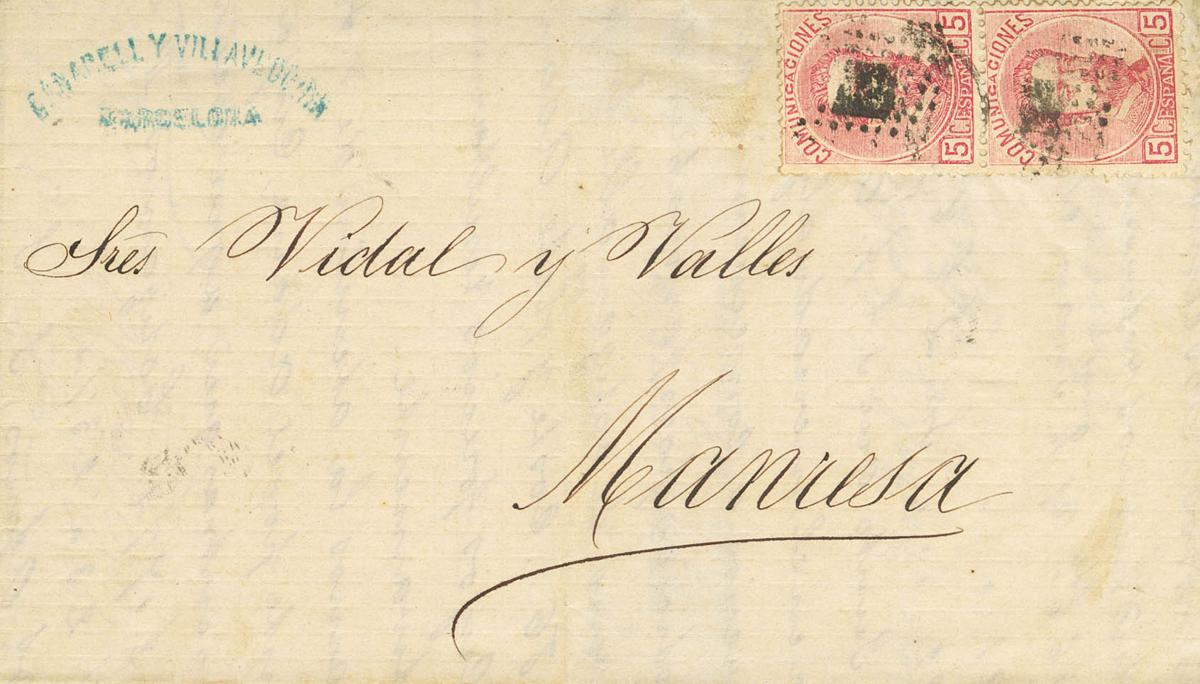 Y
BARCELONA
COMUNICACIONES
5 C. ESPAÑA C. 5
COMUNICACIONES
5 C. ESPAÑA C. 5
Sres Vidal y Valles
Manresa